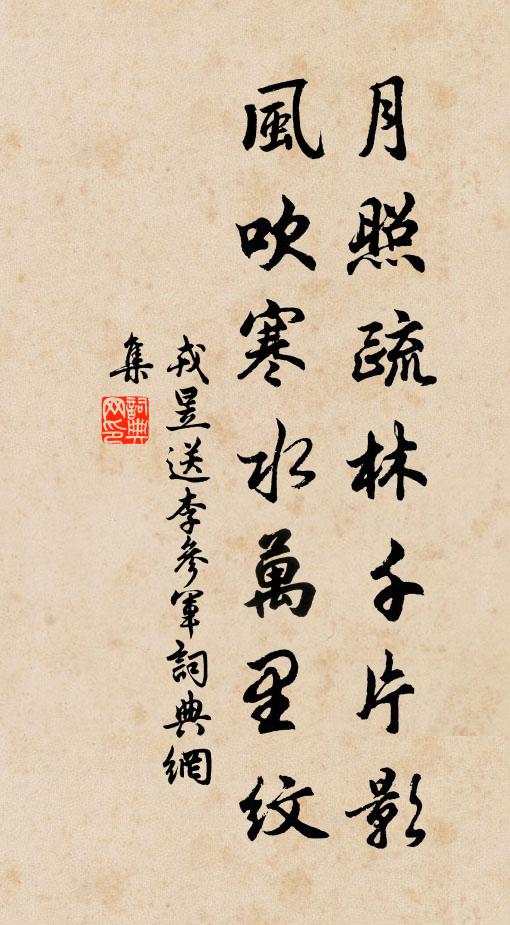 月照疏林千片影
風吹寒水萬里紋
戎昱送李參軍詞典網
集
詞典
网印